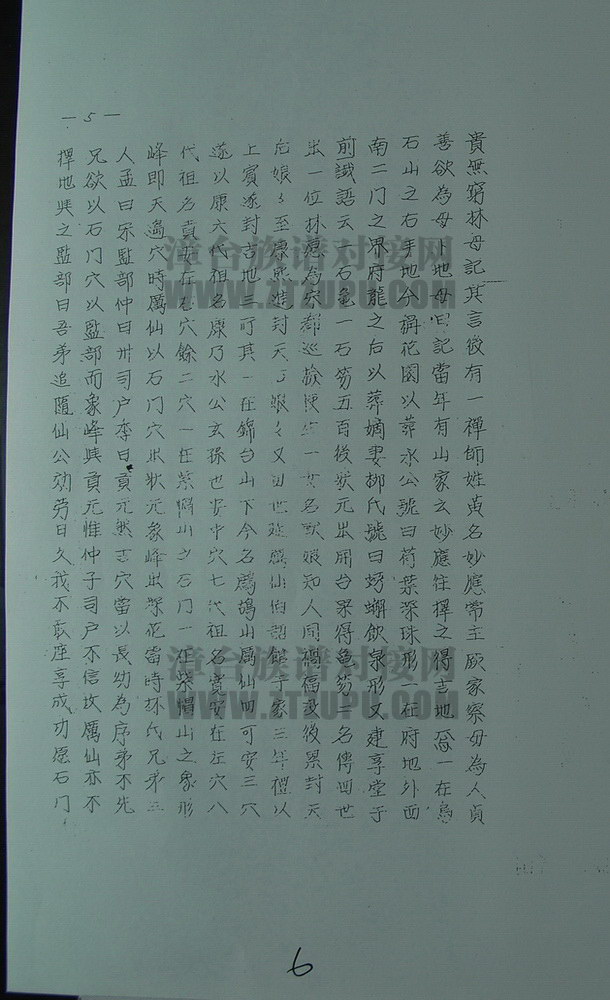 —5—
貴無窮林母記其言後有一禪師姓黃名妙應常主顧家察母為人貞
善欲為母卜地母因記當年有山家玄妙應往擇之得吉地焉一在烏
石山之右手地今稱花園以葬水公號曰荷葉深珠形一在府地外西
南二門之界府龍之后以葬嫡妻柳氏號曰螃蠏飲泉形又建享堂于
前讖語云一石龜一石笏五百後狀元出開台果得龜笏二名傳四世
出一位林愿為宋都巡檢使生一女名默娘知人間禍福歿後累封天
后娘々至康熙造封天上娘々又四世延厲仙伯韶館于家三年禮以
上賓遂封吉地三可其一在錦台山下今名鷓鴣山厲仙四可安三穴
遂以康六代祖名康乃水公玄孫也安中穴七代祖名寶安在左穴八
代祖名貢安在右穴餘二穴一在紫帽山之石門一在紫帽山之象形
峰即天過穴時厲仙以石門穴出狀元象峰出探花當時林氏兄弟三
人孟曰宋監部仲曰卅司户季曰貢元然吉穴當以長幼為序弟不先
兄欲以石門穴以監部而象峰與貢元惟仲子司户不信坎厲仙亦不
擇地與之監部曰吾弟追隨仙公効劳日久我不敢座享成功愿石門
漳台族谱对接网
WWW.ZTZUPU.COM
漳台族谱对接网
WWW.ZTZUPU.COM
6